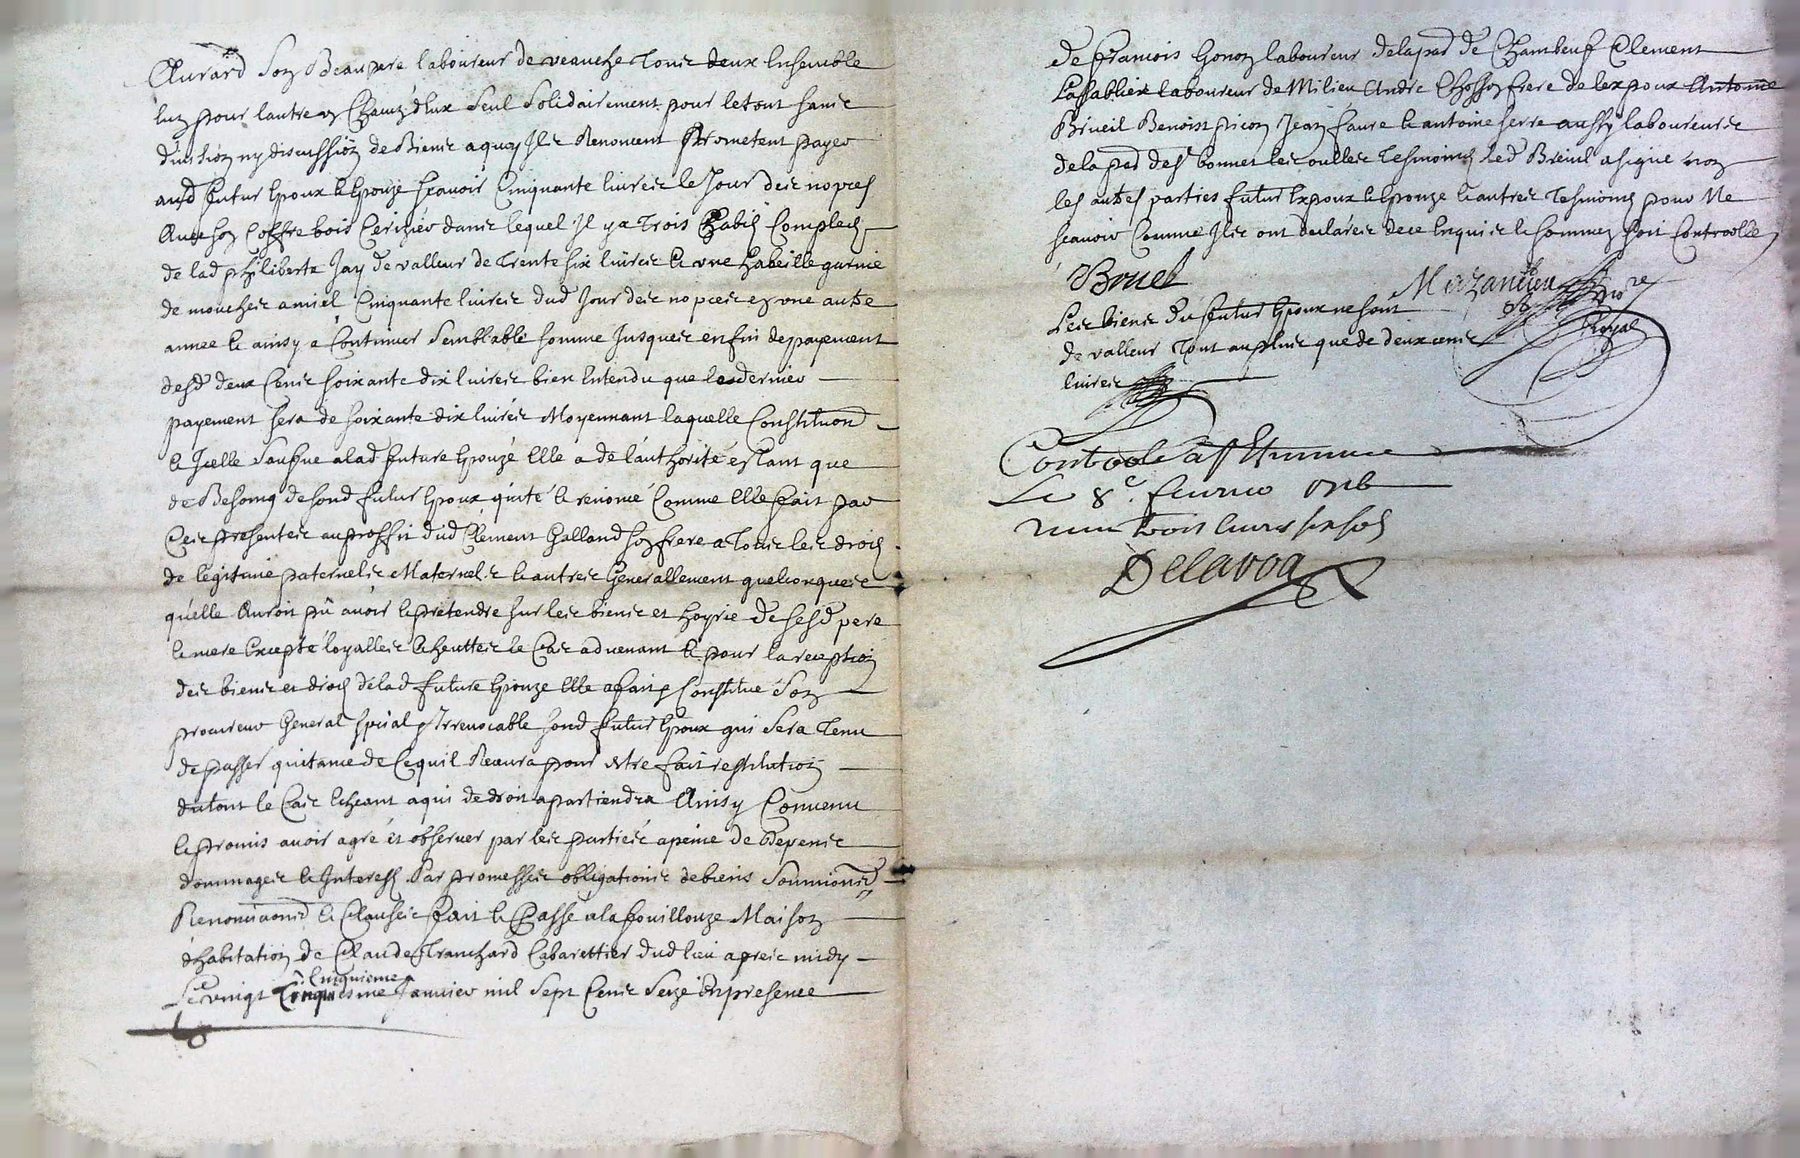 Ourard son beaupere laboureur de veauche tous deux ensemble
lun pour lautre et chacun deux seul solidairement pour le tout sans
division ny discussion de biens a quoy ils renoncent prometent payer
ausd futur epoux et epouze scavoir cinquante livres le jour des nopces
un coffre bois cerizier dans lequel il y a trois habits complects
de lad philiberte jay de valleur de trente six livres et une habeille garnie
de mouches a miel cinquante livres dud jour des nopces en une autre
annee et ainsy a continuer semblable somme jusques en fin de payement
desd deux cens soixante dix livres bien entendu que le dernier
payement sera de soixante dix livres moyennant laquelle constitution
et icelle saufve a lad future epouze elle a de lauthorité estant que
de besoing de sond futur epoux quité et renoncé comme elle fait par
ces presentes au proffit dud Clement Galland son frere a tous les droits
de legitime paternels maternels et autres generallement quelconques
quelle auroit pû avoir et pretendre sur les biens et hoyrie de sesd pere
et mere excepté loyalles echeuttes le cas advenant et pour la reception
des biens et droits de lad future epouze elle a fait et constitué son
procureur general special et irrevocable sond futur epoux qui sera tenu
de passer quitance de ce quil recevra pour estre fait restitution
du tout le cas echeant a qui de droit apartiendra Ainsy convenu
et promis avoir agré et observer par les parties a peine de depens
dommages et interests par promesses obligations de biens soumions
Renonciaons et clauses fait et passé a la fouillouze maison
dhabitation de Claude Tranchard cabarettier dud lieu apres midy
cinquieme
Le vingt cinquiesme janvier mil sept cens seize en presence
de francois Gonon laboureur de la par de Chambeuf Clement
Lassablier laboureur de Milieu Andre Chosson frere de lexpoux Antoine
Brueil Benoist picon Jean faure et antoine serre aussy laboureurs
de la par de st bonnet les oulles tesmoins led Breuil a signé non
les autres parties futur expoux et epouze et autres tesmoins pour ne
scavoir comme ils ont declarés de ce enquis et sommez soit controolle
Bruel
Mazandieu
nore
Royal
Les biens du futur epoux ne sont
de valleur tout au plus que de deux cens
livres
Controole a st Etienne
Le 8e fevrier 1716
receu trois livres six sols
Delavoa